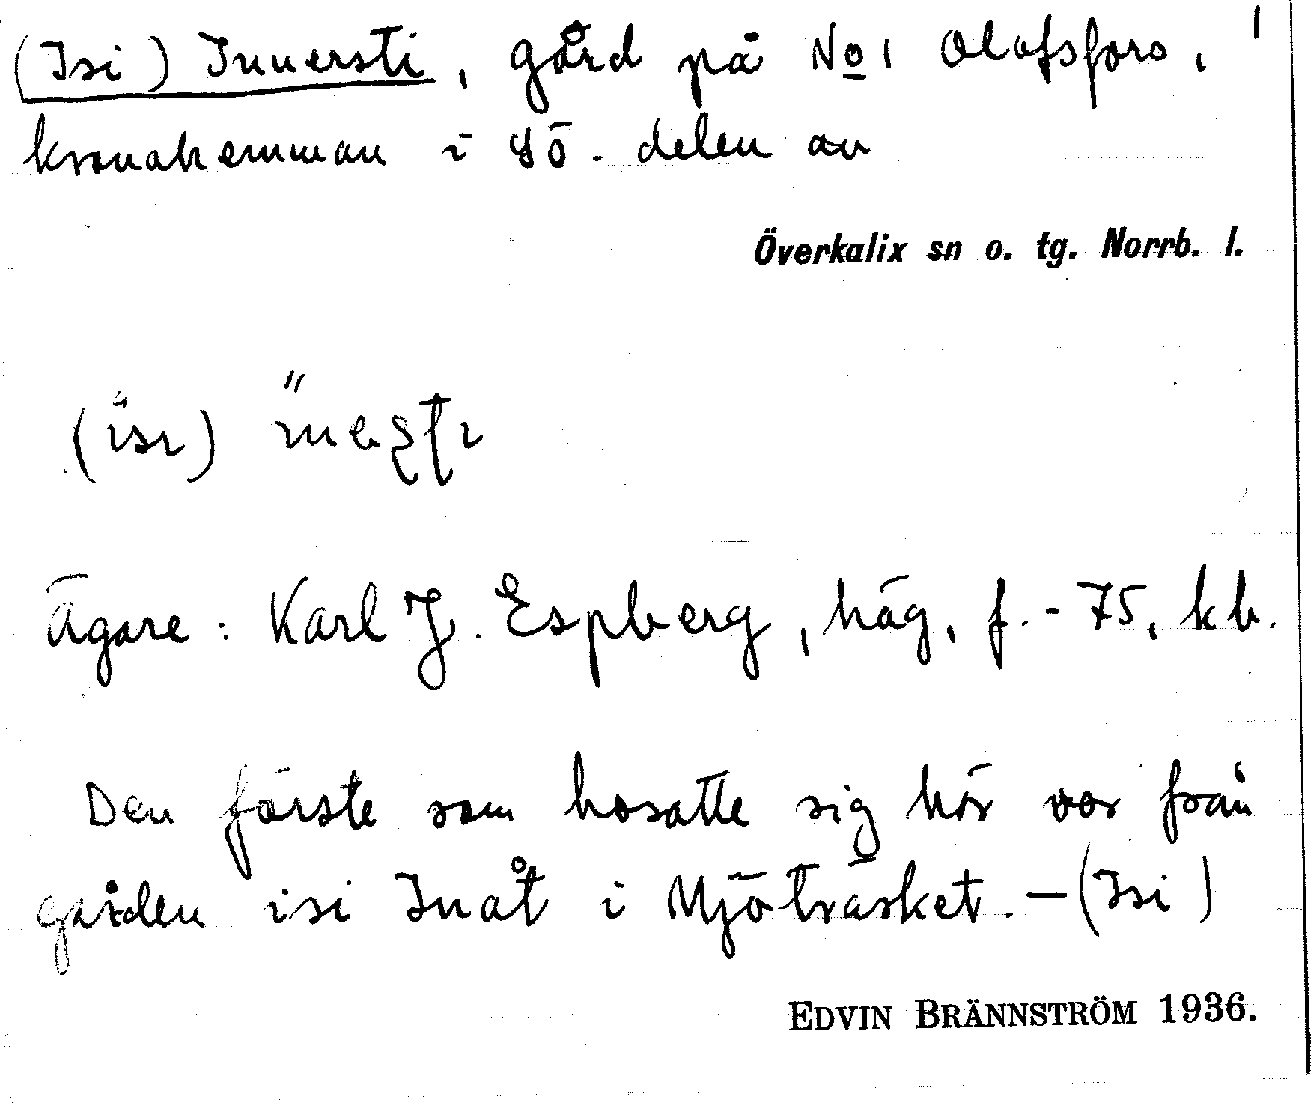 (Isi) Innersti, gård på No 1 Olofsfors,
kronohemman i sö. delen av
Överkalix sn o. tg. Norrb. l.
Ägare: Karl J. Espberg, häg, f. -75, kb.
Den förste som bosatte sig här var från
gården isi Inåt i Mjöträsket. – (Isi)
EDVIN BRÄNNSTRÖM 1936.